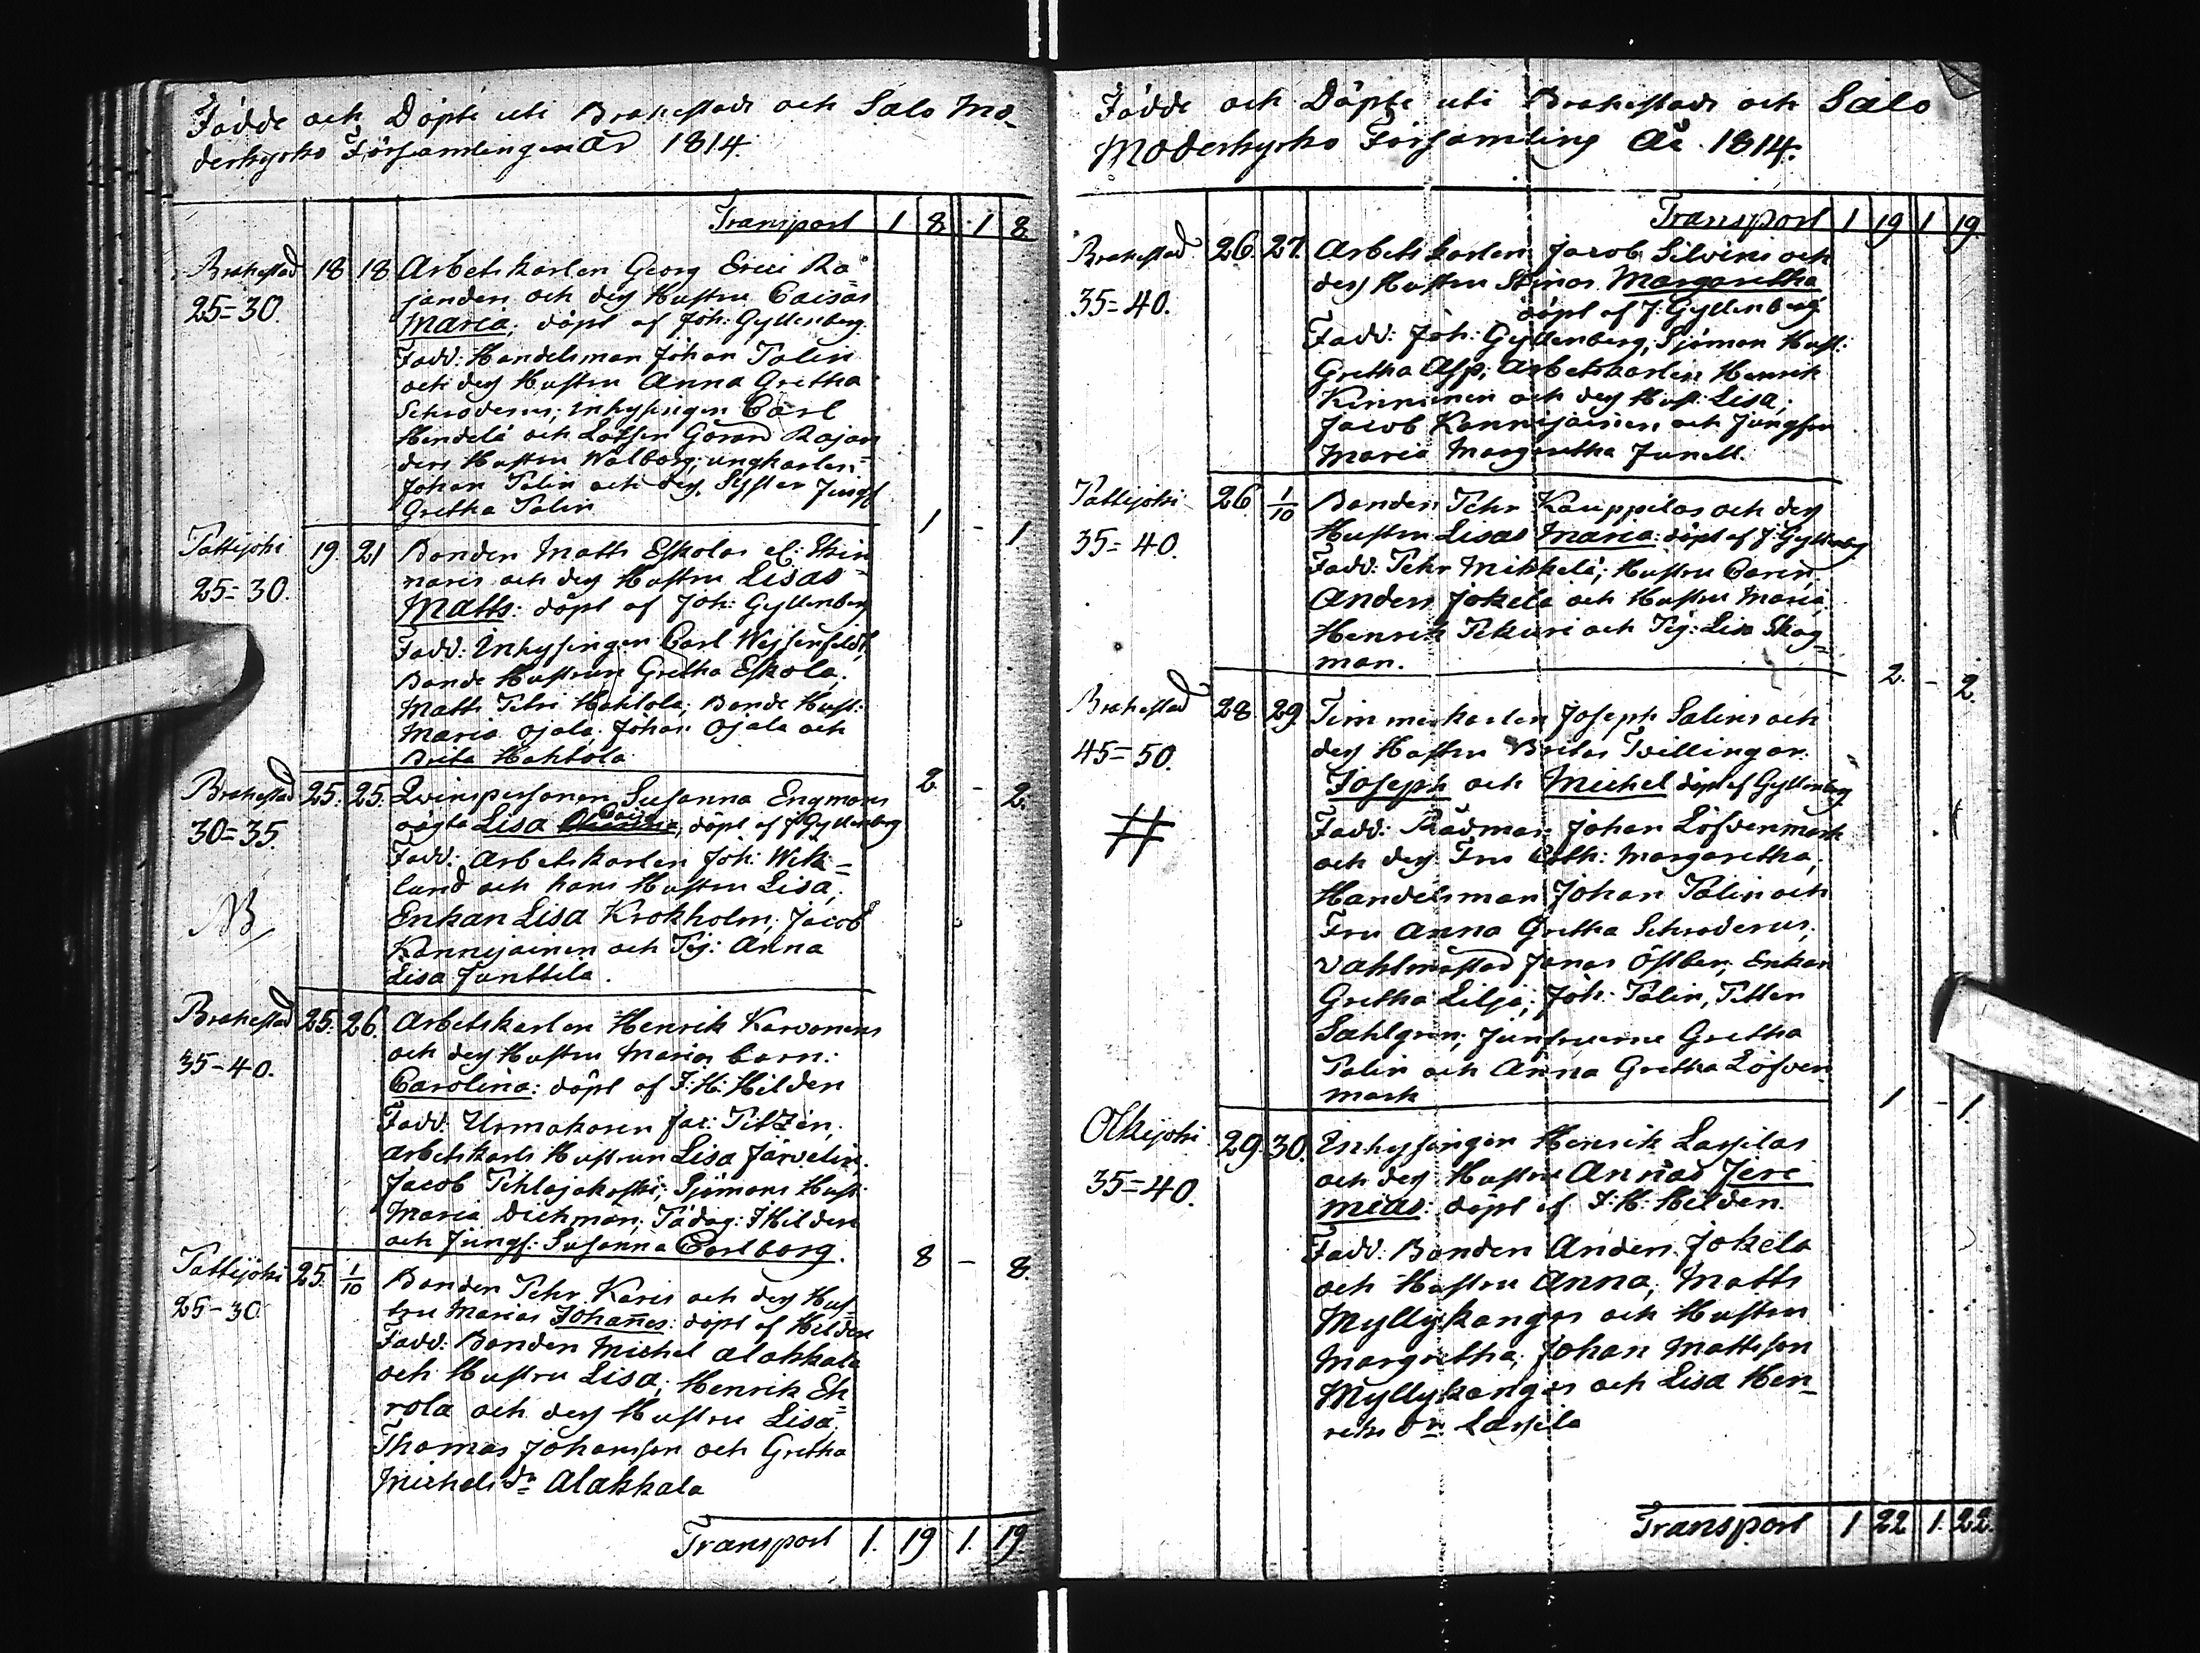 Födde och Döpte uti Brahestads och Salo Mo-
derkyrko Församlingen År 1814.
Transport 1 8 1 8
Brahestad 18 18 Arbetskarlen Georg Erici Ra
25=30. janders och dess Hustru Caisas
Maria; döpt af Joh: Gyllenberg
Fadd: Handelsman Johan Palin
och dess Hustru Anna Gretha
Schroderus; inhysingen Carl
Hendelä och Lotsen Göran Rajan
ders Hustru Walborg; ungkarlen
Johan Palin och dess Syster Jungf
Gretha Palin 1 - 1
Pattijoki 19. 21 Bonden Matts Eskolas el:
25=30. och dess Hustru Lisas
Matts: döpt af Joh: Gyllenberg
Fadd: Inhysingen Carl Wissenfeldt,
Bonde Hustrun Gretha Eskola;
Matts Pehri Hahtola; Bonde Hust:
Maria Ojala; Johan Ojala och
Brita Hahtola 2 - 2.
Brahestad 25. 25. Qvinspersonen Susanna Engmans
30=35. oägta Lisa Caisa, döpt af J Gyllenberg
Fadd: Arbetskarlen Joh: Wik=
lund och hans Hustru Lisa;
NB Enkan Lisa Krokholm; Jacob
Kannijainen och Pig: Anna
Lisa Junttila.
Brahestad 25. 26. Arbetskarlen Henrik Karvonens
35-40. och dess Hustru Marias barn:
Carolina: döpt af J: H: Hilden
Fadd: Urmakaren Jac: Pitzén,
Arbetskarls Hustrun Lisa Järvelin
Jacob Pihlajakoski; Sjömans Hust:
Maria Dickman; Pädag: J Hilden
och Jungf: Susanna Carlborg. 8 - 8.
Pattijoki 25. 1/10 Bonden Pehr Karis och dess Hus-
25-30. tru Marias Johannes: döpt af Hilden
Fadd: Bonden Michel Alakkala
och Hustru Lisa; Henrik Eh
rola och dess Hustru Lisa
Thomas Johansson och Gretha
Michelsdr Alakkala
Transport 1. 19 1. 19.
Födde och Döpte uti Brahestads och Salo
Moderkyrko Församling År 1814.
Transport 1 19 1 19.
Brahestad 26. 27. Arbetskarlen Jacob Silvins och
35=40. dess Hustru Stinas Margaretha
döpt af J: Gyllenberg
Fadd: Joh: Gyllenberg, Sjöman Hust:
Gretha Asp; Arbetskarlen Henrik
Kinnunen och dess Hust: Lisa;
Jacob Kannijainen och Jungfru
Maria Margaretha Junell.
Pattijoki 26. 1/10 Bonden Pehr Kauppilas och dess
35=40. Hustru Lisas Maria: döpt af J: Gyllenberg
Fadd: Pehr Mikkelä; Hustru Caren
Anders Jokela och Hustru Maria
Henrik Pekuri och Pig: Lisa Skog=
man. 2. - 2.
Brahestad 28 29. Timmerkarlen Joseph Salins och
45=50. dess Hustru Britas Tvillingar.
Joseph och Michel döpt af Gyllenberg
# Fadd: Rådman Johan Löfvenmark
och dess Fru Cath: Margaretha;
Handelsman Johan Palin och
Fru Anna Gretha Schroderus,
Vahlmästad Jonas Östber; Enkan
Gretha Lilja; Joh: Palin, Petter
Sahlgren; Junfruerne Gretha
Palin och Anna Gretha Löfven
mark 1 - 1.
Olkijoki 29. 30. Inhysingen Henrik Lassilas
35=40. och dess Hustru Annas Jere
mias: döpt af J: H: Hilden.
Fadd: Bonden Anders Jokela
och Hustru Anna; Matts
Myllykangas och Hustru
Margretha; Johan Mattsson
Myllykangas och Lisa Hen-
riks dr Lassila
Transport 1 22 1. 22.